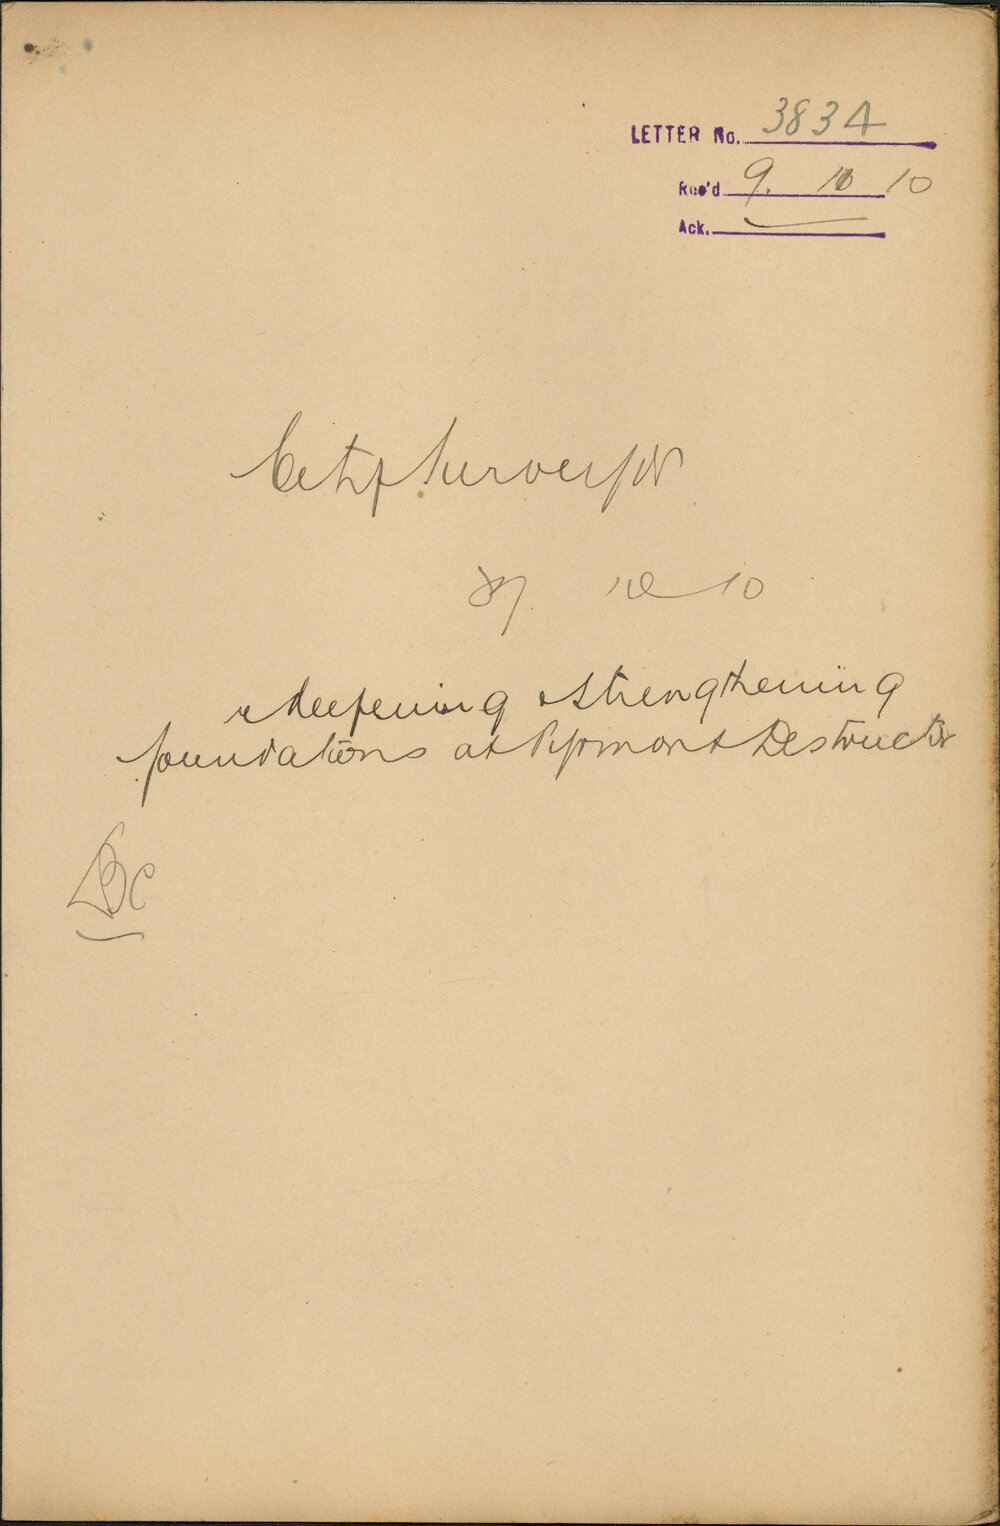 LETTER No. 3834
Rec'd 9. 10 10
Ack.
City Surveyor
10 10
re deepening & strengthening
foundations at Pyrmont Destructor